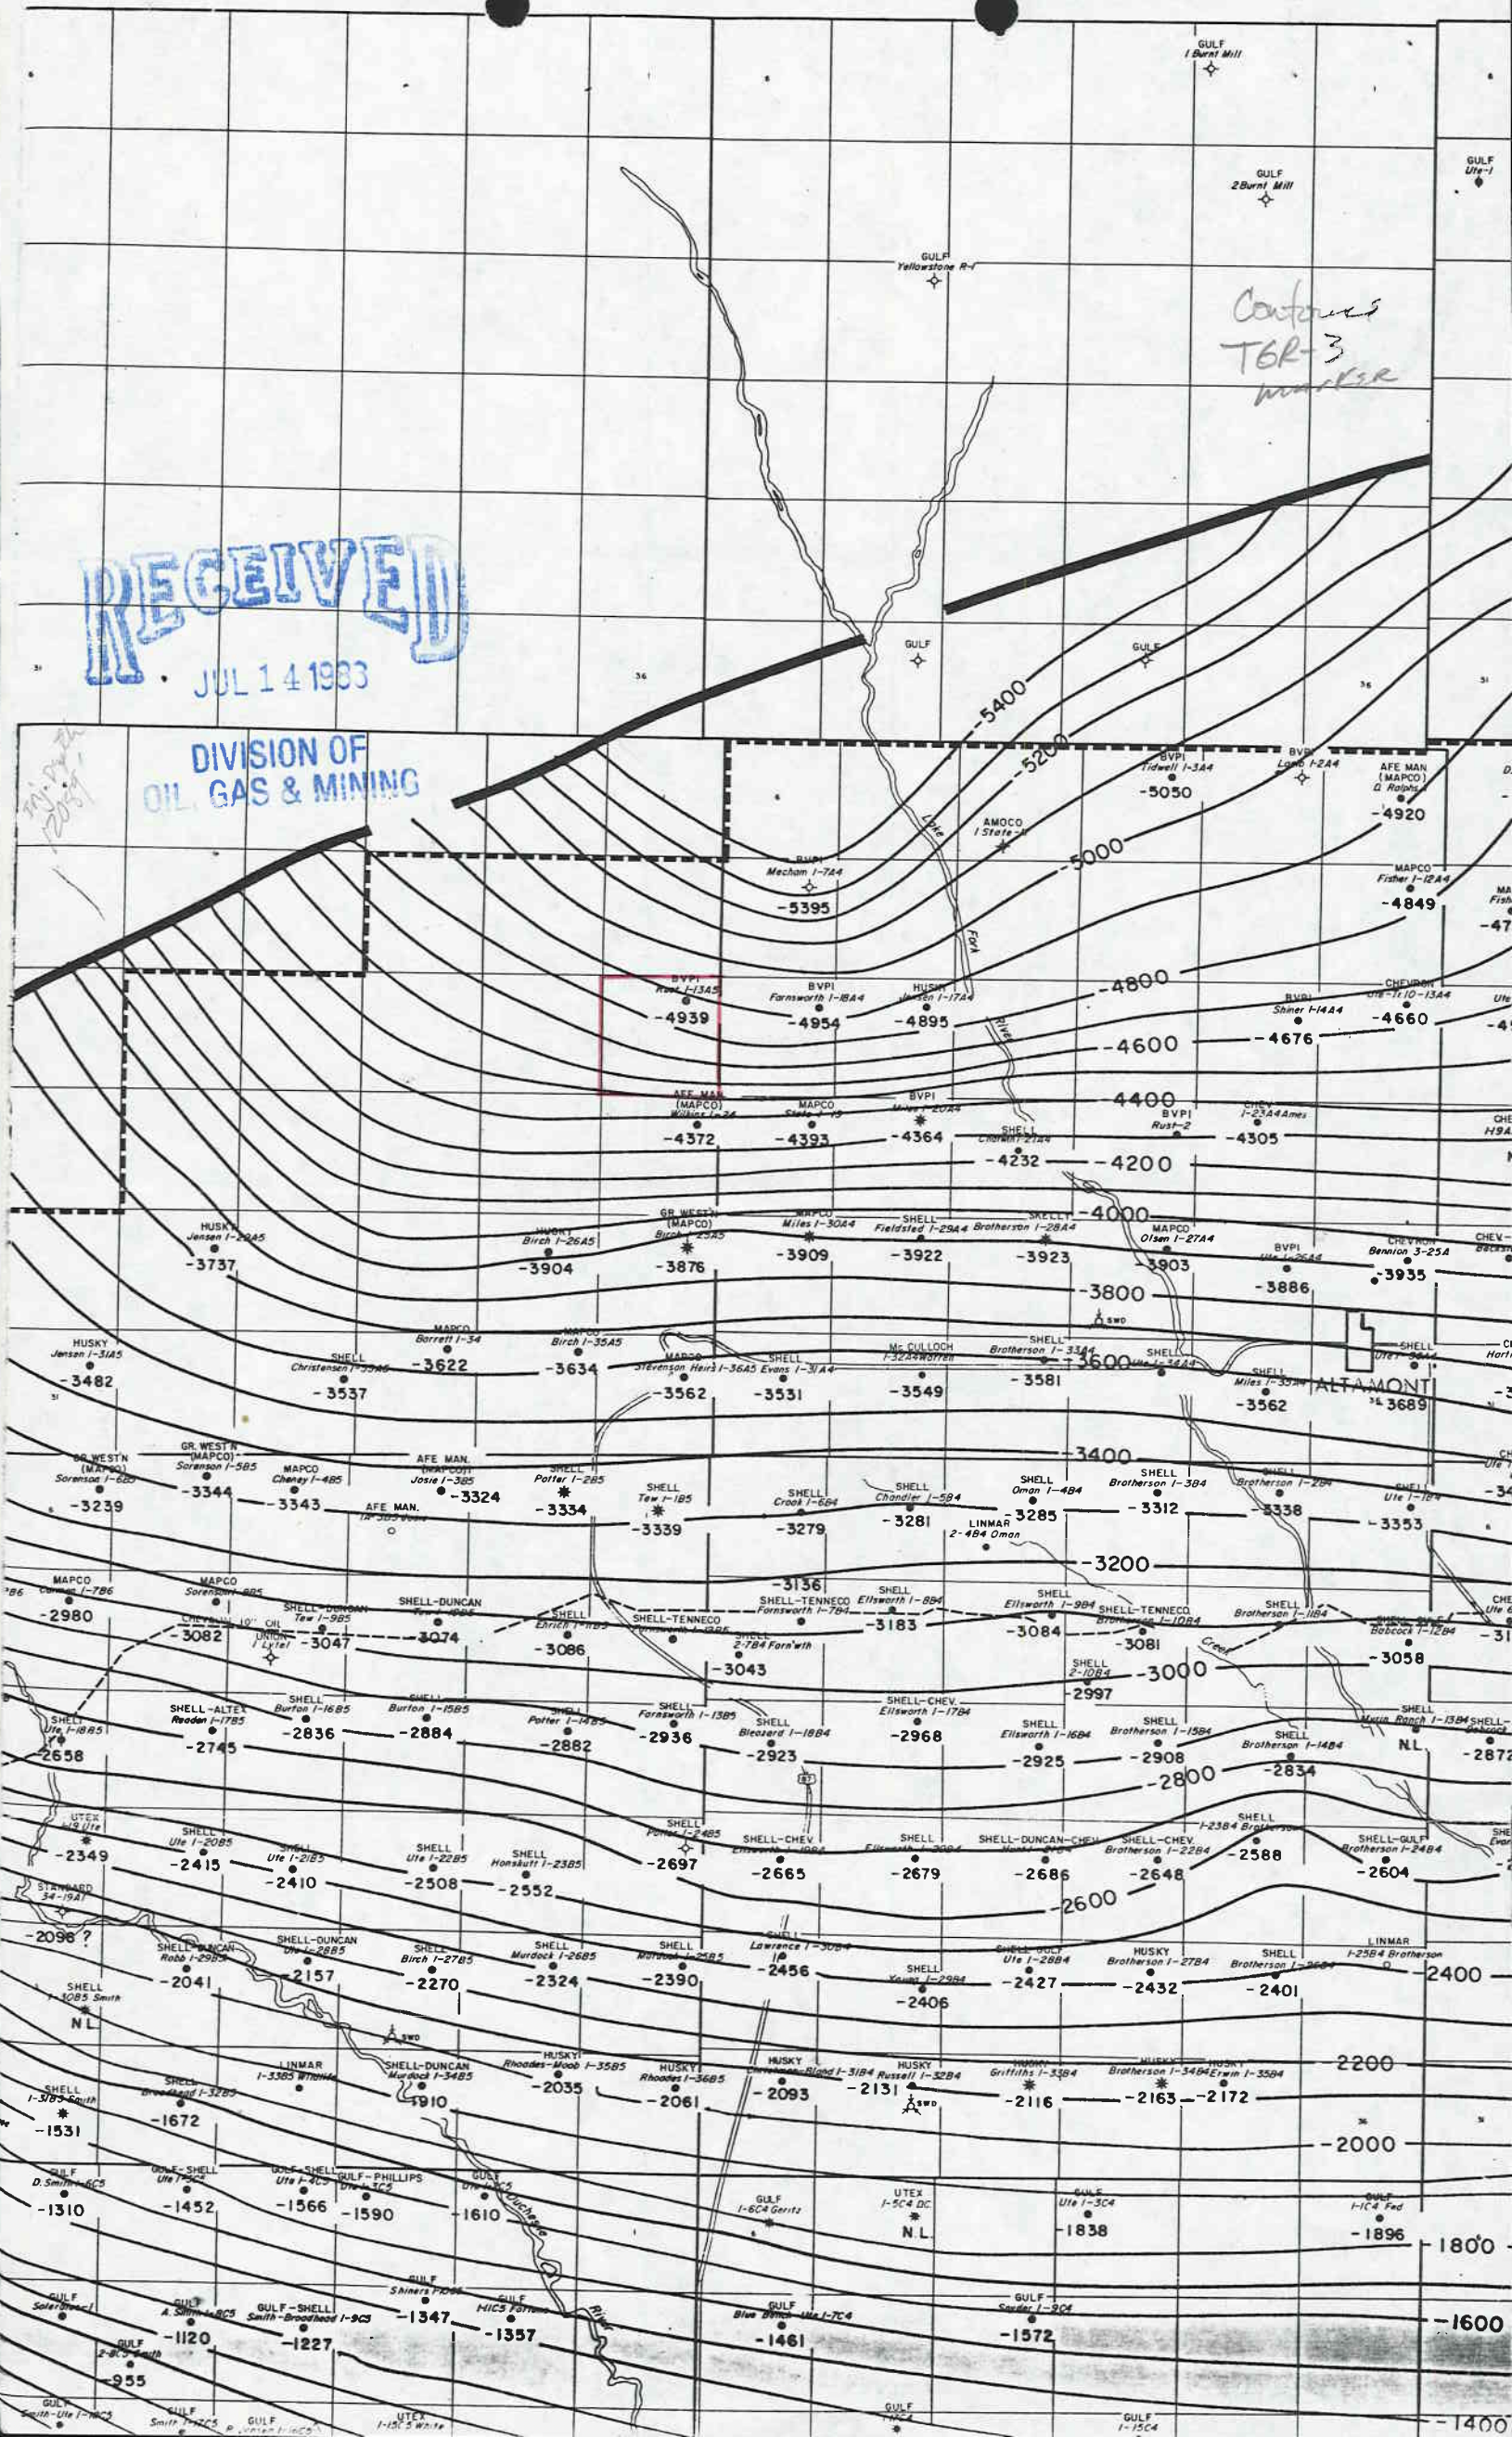 GULF
1 Burnt Mill
GULF
2 Burnt Mill
GULF
Ute-1
GULF
Yellowstone R-1
Contours
TGR-3
marker
RECEIVED
JUL 14 1983
DIVISION OF
OIL, GAS & MINING
31
36
GULF
GULF
36
31
-5400
-5200
BVPI
Tidwell 1-3A4
-5050
BVPI
Lamb 1-2A4
AFE MAN
(MAPCO)
-4920
AMOCO
Lake
-5000
BVPI
Mecham 1-7A4
-5395
MAPCO
Fisher 1-12A4
-4849
Fork
-4800
BVPI
Rust 1-13A5
-4939
BVPI
Farnsworth 1-18A4
-4954
HUSKY
Jensen 1-17A4
-4895
BVPI
Shiner 1-14A4
-4676
CHEVRON
-4660
River
-4600
-4400
AFE MAN
(MAPCO)
-4372
MAPCO
-4393
BVPI
Miles 1-20A4
-4364
SHELL
-4232
-4200
BVPI
Rust-2
CHEV
1-23A4 Ames
-4305
HUSKY
-3737
HUSKY
Birch 1-26A5
-3904
GR. WEST'N
(MAPCO)
Birch 1-25A5
-3876
MAPCO
Miles 1-30A4
-3909
SHELL
Fieldsted 1-29A4
-3922
SKELLY
Brotherson 1-28A4
-3923
-4000
MAPCO
Olsen 1-27A4
-3903
BVPI
-3886
CHEVRON
Bennion 3-25A
-3935
-3800
SWD
HUSKY
Jensen 1-31A5
-3482
SHELL
-3537
MAPCO
Barrett 1-34
-3622
MAPCO
Birch 1-35A5
-3634
MAPCO
Stevenson Heirs 1-36A5
-3562
SHELL
Evans 1-31A4
-3531
Mc CULLOCH
-3549
SHELL
Brotherson 1-33A4
-3581
-3600
SHELL
SHELL
Miles 1-35A4
-3562
ALTAMONT
SHELL
3689
-3400
GR. WEST'N
(MAPCO)
Sorenson 1-6B5
-3239
GR. WEST'N
(MAPCO)
Sorenson 1-5B5
-3344
MAPCO
Cheney 1-4B5
-3343
AFE MAN.
(MAPCO)
Josie 1-3B5
-3324
AFE MAN.
SHELL
Potter 1-2B5
-3334
SHELL
Tew 1-1B5
-3339
SHELL
Crook 1-6B4
-3279
SHELL
Chandler 1-5B4
-3281
SHELL
Oman 1-4B4
-3285
LINMAR
2-4B4 Oman
SHELL
Brotherson 1-3B4
-3312
SHELL
Brotherson 1-2B4
-3338
SHELL
Ute 1-1B4
-3353
-3200
MAPCO
-2980
MAPCO
-3082
CHEVRON 10" OIL
UNION
1 Lytel
SHELL-DUNCAN
Tew 1-9B5
-3047
SHELL-DUNCAN
-3074
SHELL
-3086
SHELL-TENNECO
SHELL
2-7B4 Farn'wth
-3043
-3136
SHELL-TENNECO
Farnsworth 1-7B4
SHELL
Ellsworth 1-8B4
-3183
SHELL
Ellsworth 1-9B4
-3084
SHELL-TENNECO
Brotherson 1-10B4
-3081
SHELL
Brotherson 1-11B4
Babcock 1-12B4
-3058
SHELL
2-10B4
-2997
-3000
Creek
SHELL
Ute 1-18B5
-2658
SHELL-ALTEX
Reeder 1-17B5
-2745
SHELL
Burton 1-16B5
-2836
SHELL
Burton 1-15B5
-2884
SHELL
Potter 1-14B5
-2882
SHELL
Farnsworth 1-13B5
-2936
SHELL
Bleazard 1-18B4
-2923
SHELL-CHEV.
Ellsworth 1-17B4
-2968
SHELL
Ellsworth 1-16B4
-2925
SHELL
Brotherson 1-15B4
-2908
SHELL
Brotherson 1-14B4
-2834
SHELL
Murin Ranch 1-13B4
N.L.
SHELL-
-2872
-2800
87
UTEX
1-19 Ute
-2349
SHELL
Ute 1-20B5
-2415
SHELL
Ute 1-21B5
-2410
SHELL
Ute 1-22B5
-2508
SHELL
Honskutt 1-23B5
-2552
SHELL
Potter 1-24B5
-2697
SHELL-CHEV.
-2665
SHELL
-2679
SHELL-DUNCAN-CHEV.
-2686
SHELL-CHEV.
Brotherson 1-22B4
-2648
SHELL
1-23B4 Brotherson
-2588
SHELL-GULF
Brotherson 1-24B4
-2604
-2600
STANDARD
34-19A1
-2098 ?
SHELL-DUNCAN
Robb 1-29B5
-2041
SHELL-DUNCAN
Ute 1-28B5
-2157
SHELL
Birch 1-27B5
-2270
SHELL
Murdock 1-26B5
-2324
SHELL
Murdock 1-25B5
-2390
SHELL
Lawrence 1-30B4
-2456
SHELL
Young 1-29B4
-2406
SHELL GULF
Ute 1-28B4
-2427
HUSKY
Brotherson 1-27B4
-2432
SHELL
Brotherson 1-26B4
-2401
LINMAR
1-25B4 Brotherson
-2400
SHELL
1-30B5 Smith
N.L.
SWD
SHELL
1-31B5 Smith
-1531
SHELL
Broadhead 1-32B5
-1672
LINMAR
SHELL-DUNCAN
Murdock 1-34B5
-1910
HUSKY
Rhoades-Moob 1-35B5
-2035
HUSKY
Rhoades 1-36B5
-2061
HUSKY
-2093
HUSKY
Russell 1-32B4
-2131
SWD
HUSKY
Griffiths 1-33B4
-2116
HUSKY
Brotherson 1-34B4
-2163
HUSKY
Erwin 1-35B4
-2172
-2200
-2000
GULF
D. Smith 1-6C5
-1310
GULF-SHELL
-1452
GULF-SHELL
Ute 1-4C5
-1566
GULF-PHILLIPS
-1590
GULF
-1610
Duchesne
GULF
1-6C4 Geritz
UTEX
1-5C4 DC
N.L.
GULF
Ute 1-3C4
-1838
GULF
1-1C4 Fed
-1896
-1800
GULF
GULF
A. Smith 1-8C5
-1120
GULF-SHELL
Smith-Broadhead 1-9C5
-1227
GULF
-1347
GULF
-1357
River
GULF
-1461
GULF
Snyder 1-9C4
-1572
-1600
GULF
-955
GULF
GULF
GULF
UTEX
1-15C5 White
GULF
GULF
1-15C4
-1400